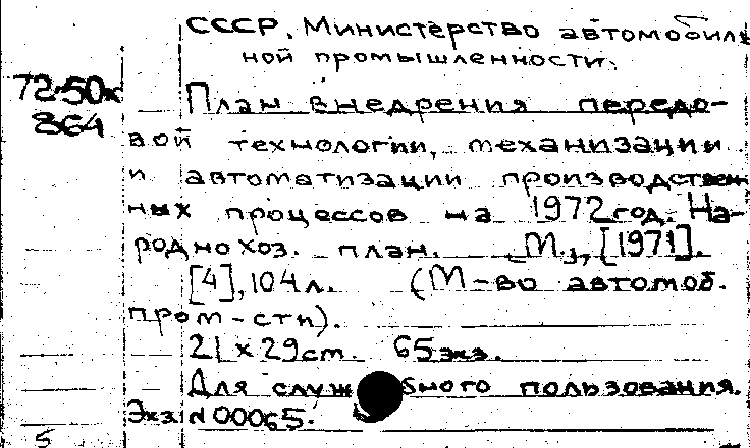 СССР. Министерство автомобиль
ной промышленности.
72-50к
864
План внедрения передо-
вой технологии, механизации
и автоматизации производствен-
ных процессов на 1972 год. На-
роднохоз. план. М., [1971].
[4], 104 л. (М-во автомоб.
пром-сти).
21 x 29 см. 65 экз.
Для служ бного пользования.
Экз. N 00065.
5